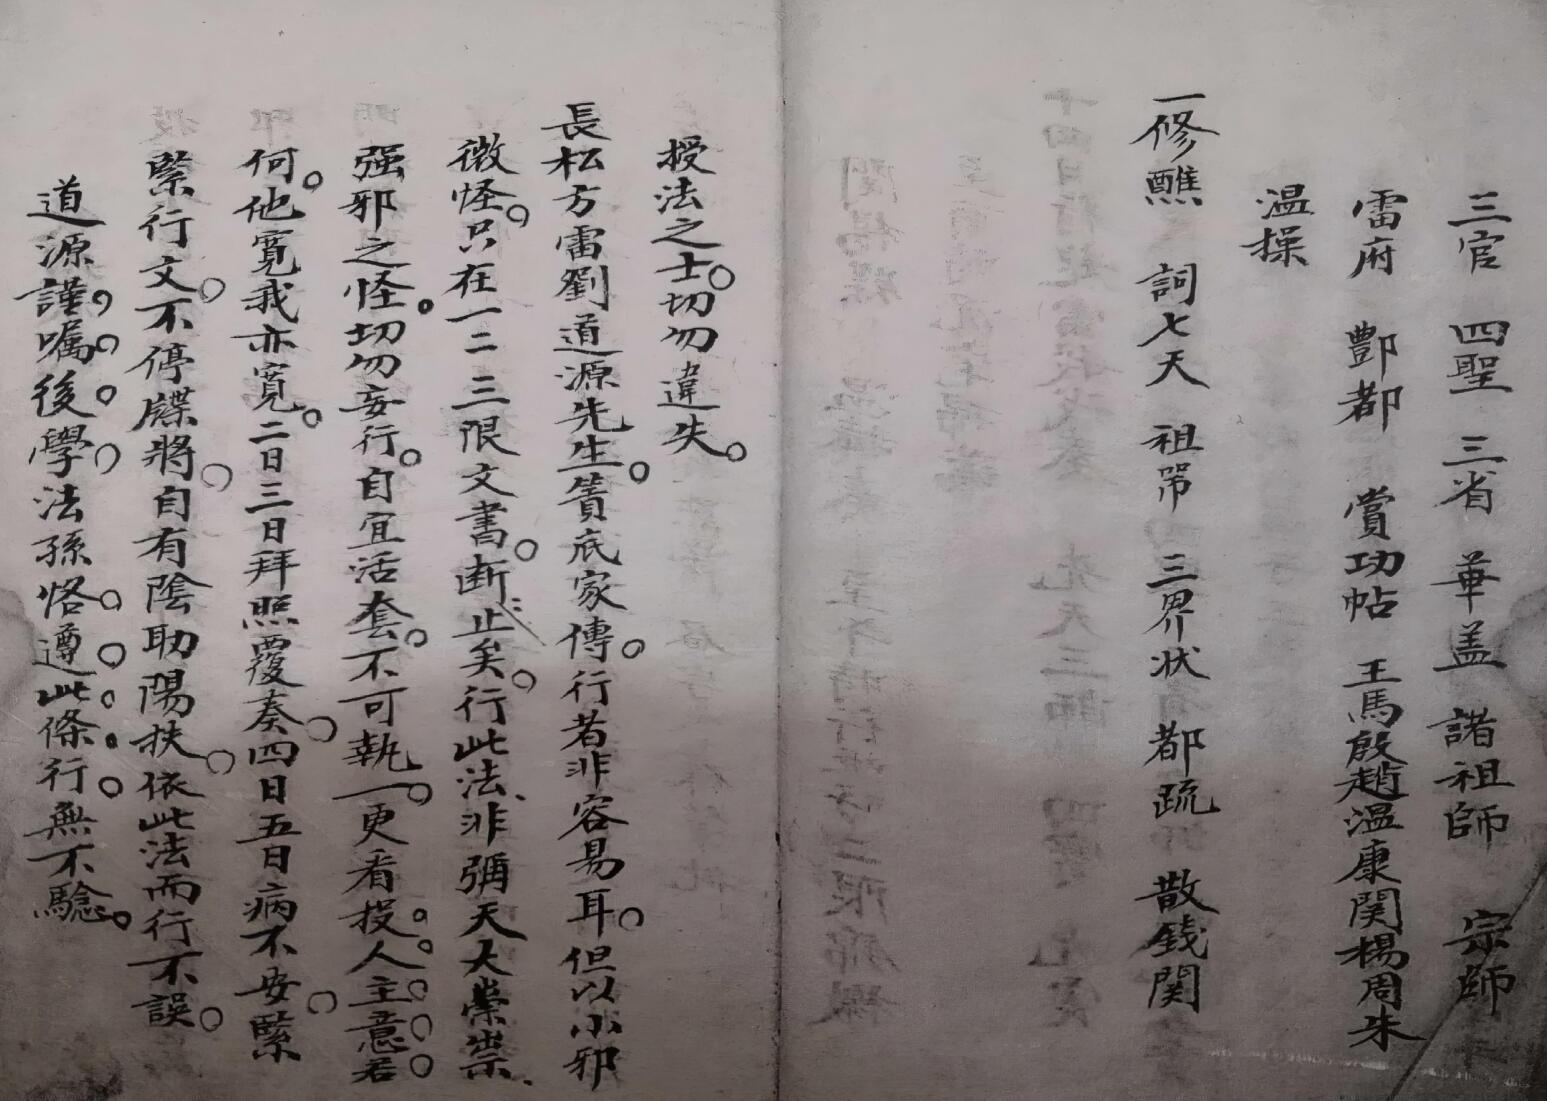 三官 四聖 三省 華盖 諸祖師 宗師
雷府 酆都 賞功帖 王馬殷趙温康関楊周朱
温操
一修醮 詞七天 祖吊 三界状 都疏 散錢関
授法之士。切勿違失。
長松方雷劉道源先生。簣底家傳。行者非容易耳。但以小邪
微怪。只在一二三限文書。断止矣。行此法、非彌天大祟祟、
强邪之怪。切勿妄行。自宜活套。不可執一。更看投人主意若
何。他寛我亦寛。二日三日拜照覆奏。四日五日病不安。緊
緊行文。不停牒將。自有陰助陽扶。依此法而行不誤。
道源謹囑。後學法孫恪遵此條行無不驗。